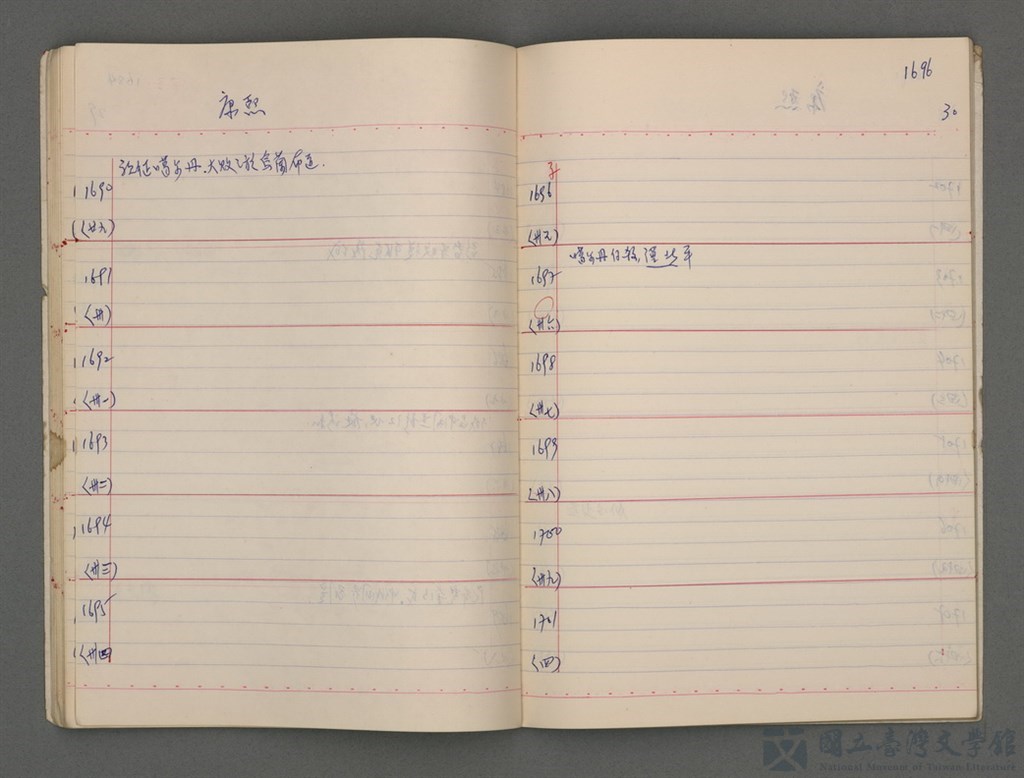 康熙
征噶尔丹,大敗之於烏蘭布通.
1690
(廿九)
1691
(卅)
1692
(卅一)
1693
(卅二)
1694
(卅三)
1695
(卅四)
1696
30
1696
(卅五)
噶尔丹自殺,漠北平
1697
(卅六)
1698
(卅七)
1699
(卅八)
1700
(卅九)
1701
(四)
國立臺灣文學館
National Museum of Taiwan Literature